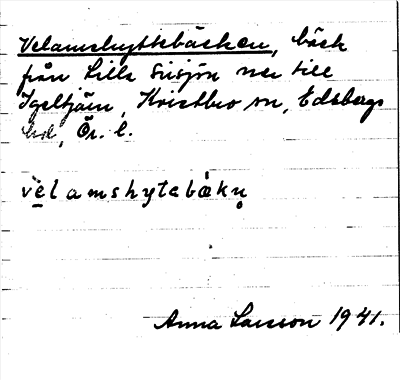 Velamshyttebäcken, bäck
från Lilla Sisjön ner till
Igeltjärn, Kvistbro sn, Edsbergs
hd, Ör. l.
vèlamshytebäkn̥
Anna Larsson 1941.